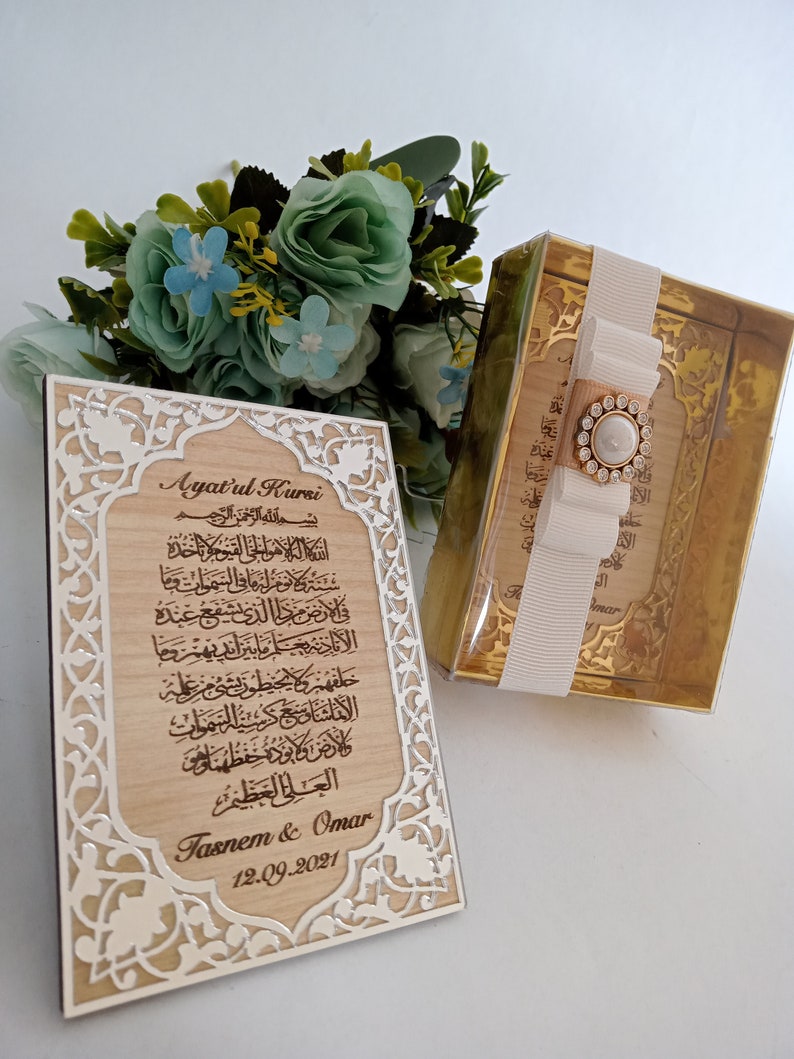 Ayat'ul Kursi
بسم الله الرحمن الرحيم
الله لا اله الا هو الحي القيوم لا تأخذه
سنة ولا نوم له ما في السموات وما
في الارض من ذا الذي يشفع عنده
الا باذنه يعلم ما بين ايديهم وما
خلفهم ولا يحيطون بشئ من علمه
الا بما شاء وسع كرسيه السموات
والارض ولا يؤده حفظهما وهو
العلي العظيم
Tasnem & Omar
12.09.2021
Omar